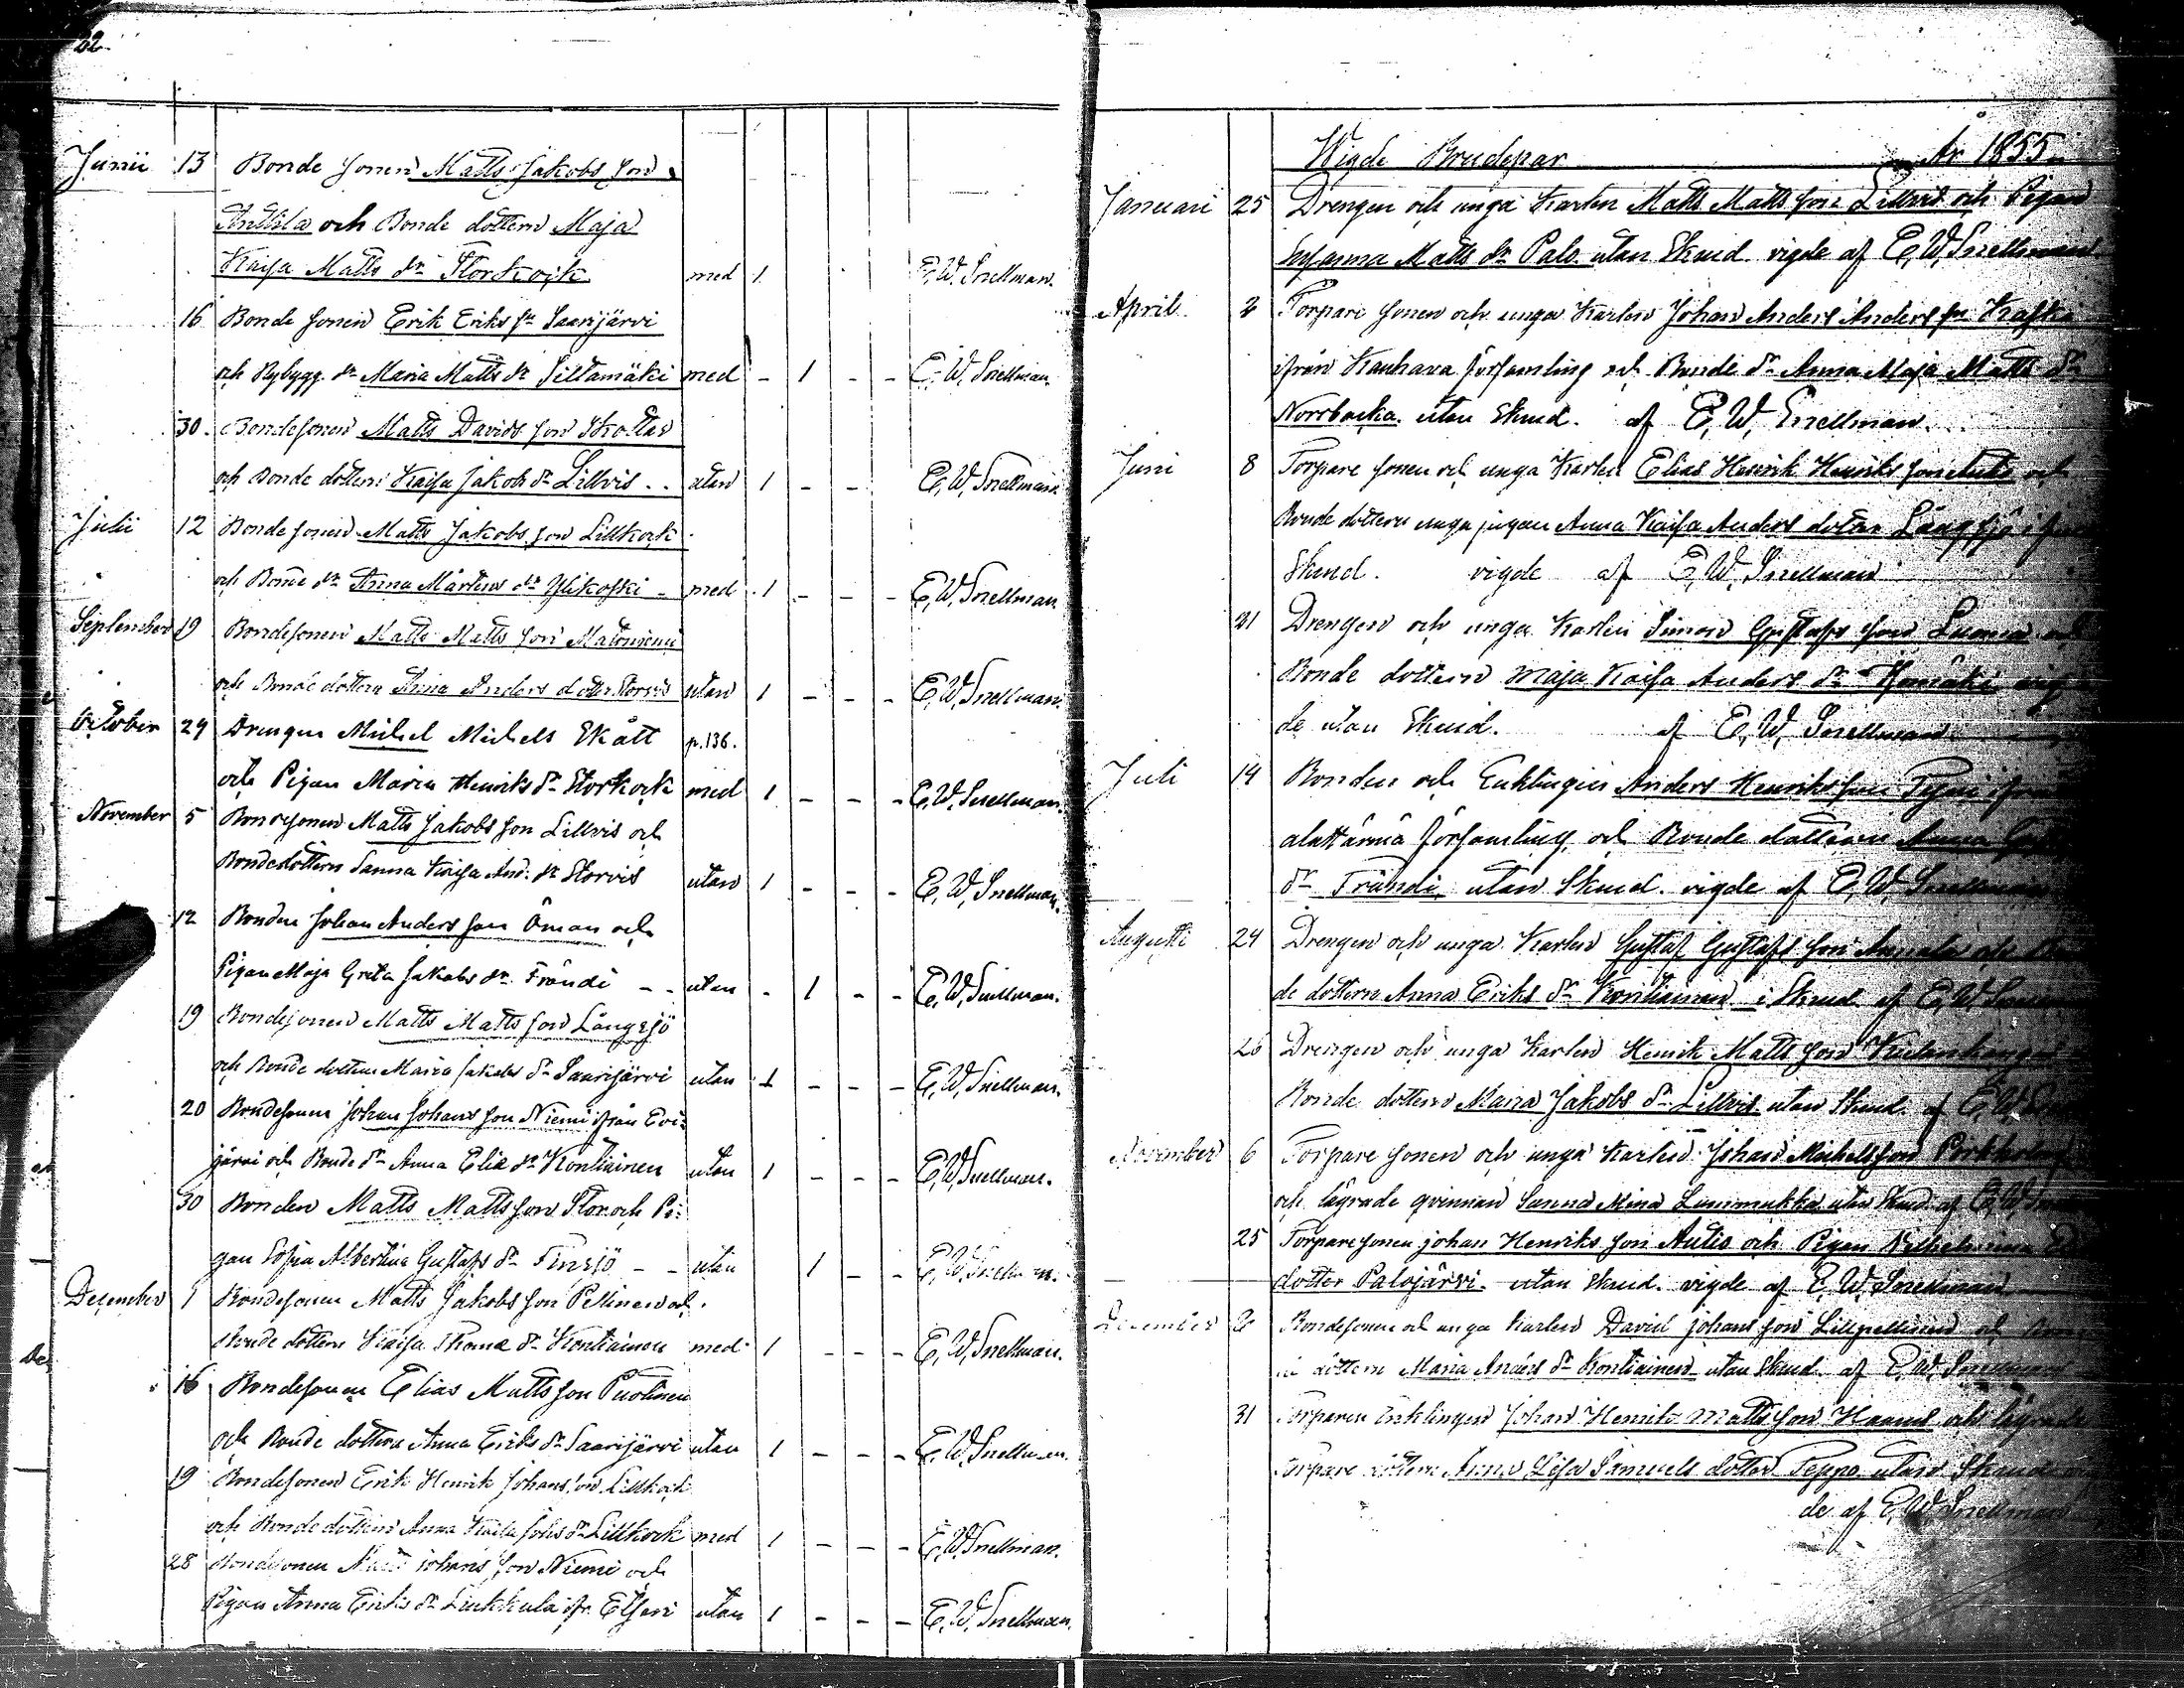 22.
Junii 13 Bonde sonen Matts Jakobs son
Anttila och Bonde dottern Maja
Kaisa Matts dr Storkock med 1 E. W. Snellman.
16 Bonde sonen Erik Eriks sn Saarijärvi
och Nybygg. dr Maria Matts dr Siltamäki med - 1 - - E. W. Snellman.
30. Bondesonen Matts Davids son
och Bonde dottern Kaisa Jakobs dr Lillvis . . utan 1 - - E. W. Snellman
Julii 12 Bondesonen Matts Jakobs son Lillkock
och Bonde dr Anna Mårtens dr Ylikoski - med 1 - - - E. W. Snellman
September 19 Bondesonen Matts Matts son Matoniemi
och Bonde dottern Anna Anders dotter Storvis utan 1 - - - E. W. Snellman.
October 24 Drengen Michel Michels Skått p. 136.
och Pigan Maria Henriks dr Storkock med 1 - - - E. W. Snellman.
November 5 Bondesonen Matts Jakobs son Lillvis och
Bondedottern Sanna Kaisa And. dr Storvis utan 1 - - - E. W. Snellman.
12 Bonden Johan Anders son Öman och
Pigan Maja Greta Jakobs dr Fröndi - - utan - 1 - - E. W. Snellman.
19 Bondesonen Matts Matts son Långsjö
och Bonde dottern Maria Jakobs dr Saarijärvi utan 1 - - - E. W. Snellman.
20 Bondesonen Johan Johans son Niemi ifrån Evi-
järvi och Bonde dr Anna Elia dr Kontiainen utan 1 - - - E. W. Snellman.
30 Bonden Matts Matts son Stor och Pi-
gan Sofia Albertina Gustafs dr Finsjö - - utan 1 - - E. W. Snellman.
December 1 Bondesonen Matts Jakobs son Pellinen och
Bonde dottern Kaisa Thoma dr Kontiainen med 1 - - - E. W. Snellman.
16 Bondesonen Elias Matts son Puolinen
och Bonde dottern Anna Eriks dr Saarijärvi utan 1 - - - E. W. Snellman.
19 Bondesonen Erik Henrik Johans son Lillkock
och Bonde dottern Anna Kaisa Johs dr Lillkock med 1 - - - E. W. Snellman.
28 Bondesonen Matts Johans son Niemi och
Pigan Anna Eriks dr Linkkula ifr. Etseri utan 1 - - - E. W. Snellman.
Wigde Brudepar År 1855
Januari 25 Drengen och unga Karlen Matts Matts son Lillvis och Pigan
Susanna Matts dr Palo utan Skud. vigde af E. W. Snellman
April 2 Torpare sonen och unga Karlen Johan Anders Anders sn
ifrån Kauhava församling och Bonde dr Anna Maja Matts dr
Norrbacka utan Skud. af E. W. Snellman.
Juni 8 Torpare sonen och unga Karlen Elias Henrik Henriks son Autio och
Bonde dottern unga pigan Anna Kaisa Anders dotter Långsjö i
Skud. vigde af E. W. Snellman
21 Drengen och unga Karlen Simon Gustafs son Luoma och
Bonde dottern Maja Kaisa Anders dr vig-
de utan Skud. af E. W. Snellman
Juli 14 Bonden och Enklingen Anders Henriks son
alatt ärmä församling och Bonde dottern Anna
dr Fröndi utan Skud. vigde af E. W. Snellman
Augusti 24 Drengen och unga Karlen Gustaf Gustafs son Annala och
de dottern Anna Eriks dr Kontiainen i Skud af E. W.
26 Drengen och unga Karlen Henrik Matts son
Bonde dottern Maria Jakobs dr Lillvis utan Skud af E. W.
November 6 Torpare sonen och unga Karlen Johan Michels son
och lägrade qvinnan Sanna Mina utan Skud af E. W.
25 Torpare sonen Johan Henriks son Autio och Pigan Wilhelmina
dotter Palojärvi utan skud. vigde af E. W. Snellman
December 2 Bondesonen och unga Karlen David Johans son Lillpellinen och
dottern Maria Anders dr Kontiainen utan Skud af E. W. Snellman
31 Torparen Enklingen Johan Henrik Matts son och lägrade
Torpare dottern Anna Lisa Samuels dotter Teppo utan Skud
de af E. W. Snellman